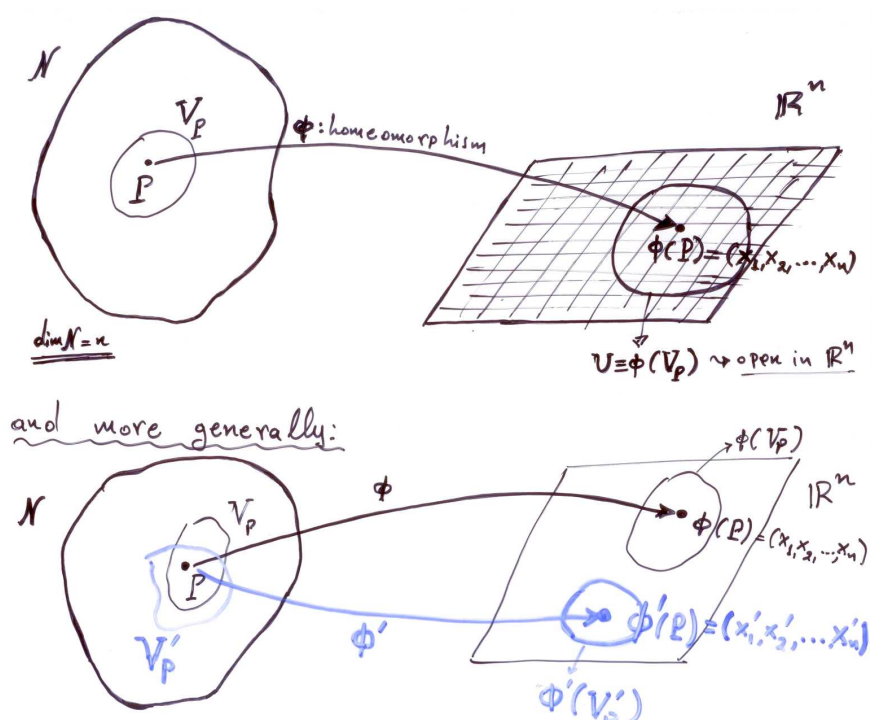 N
V_p
P
ϕ: homeomorphism
ℝⁿ
ϕ(P)=(x₁,x₂,...,xₙ)
dim N = n
U≡ϕ(V_p) ⇝ open in ℝⁿ
and more generally:
N
V_p
P
ϕ
ϕ(V_p)
ℝⁿ
ϕ(P)=(x₁,x₂,...,xₙ)
V'_p
ϕ'
ϕ'(P)=(x'₁,x'₂,...,x'ₙ)
ϕ'(V'_p)